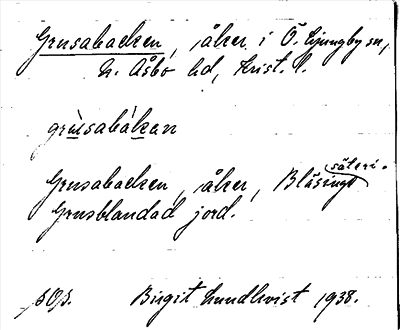 Grusabacken, åker i Ö. Ljungby sn,
N. Åsbo hd, Krist. l.
grùsabákan
Grusabacken, åker, Blåsinge säteri.
Grusblandad jord.
Birgit Lundkvist 1938.